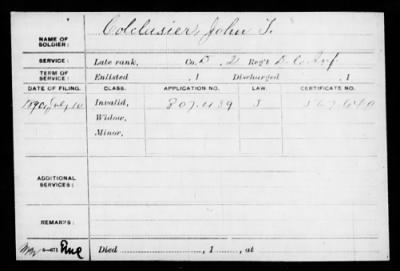 NAME OF SOLDIER: Colclasier, John T.
SERVICE: Late rank, Co. D, 2 Reg't D. C. Inf
TERM OF SERVICE: Enlisted , 1 Discharged , 1
DATE OF FILING. CLASS. APPLICATION NO. LAW. CERTIFICATE NO.
1890 July 14 Invalid, 807.439 J
Widow,
Minor,
ADDITIONAL SERVICES:
REMARKS:
Died , 1 , at